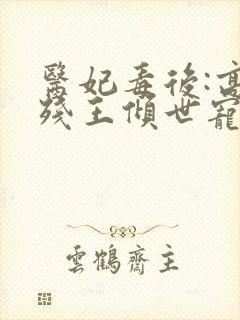 醫妃毒後:高
殘王傾世寵
雲鶴齋主